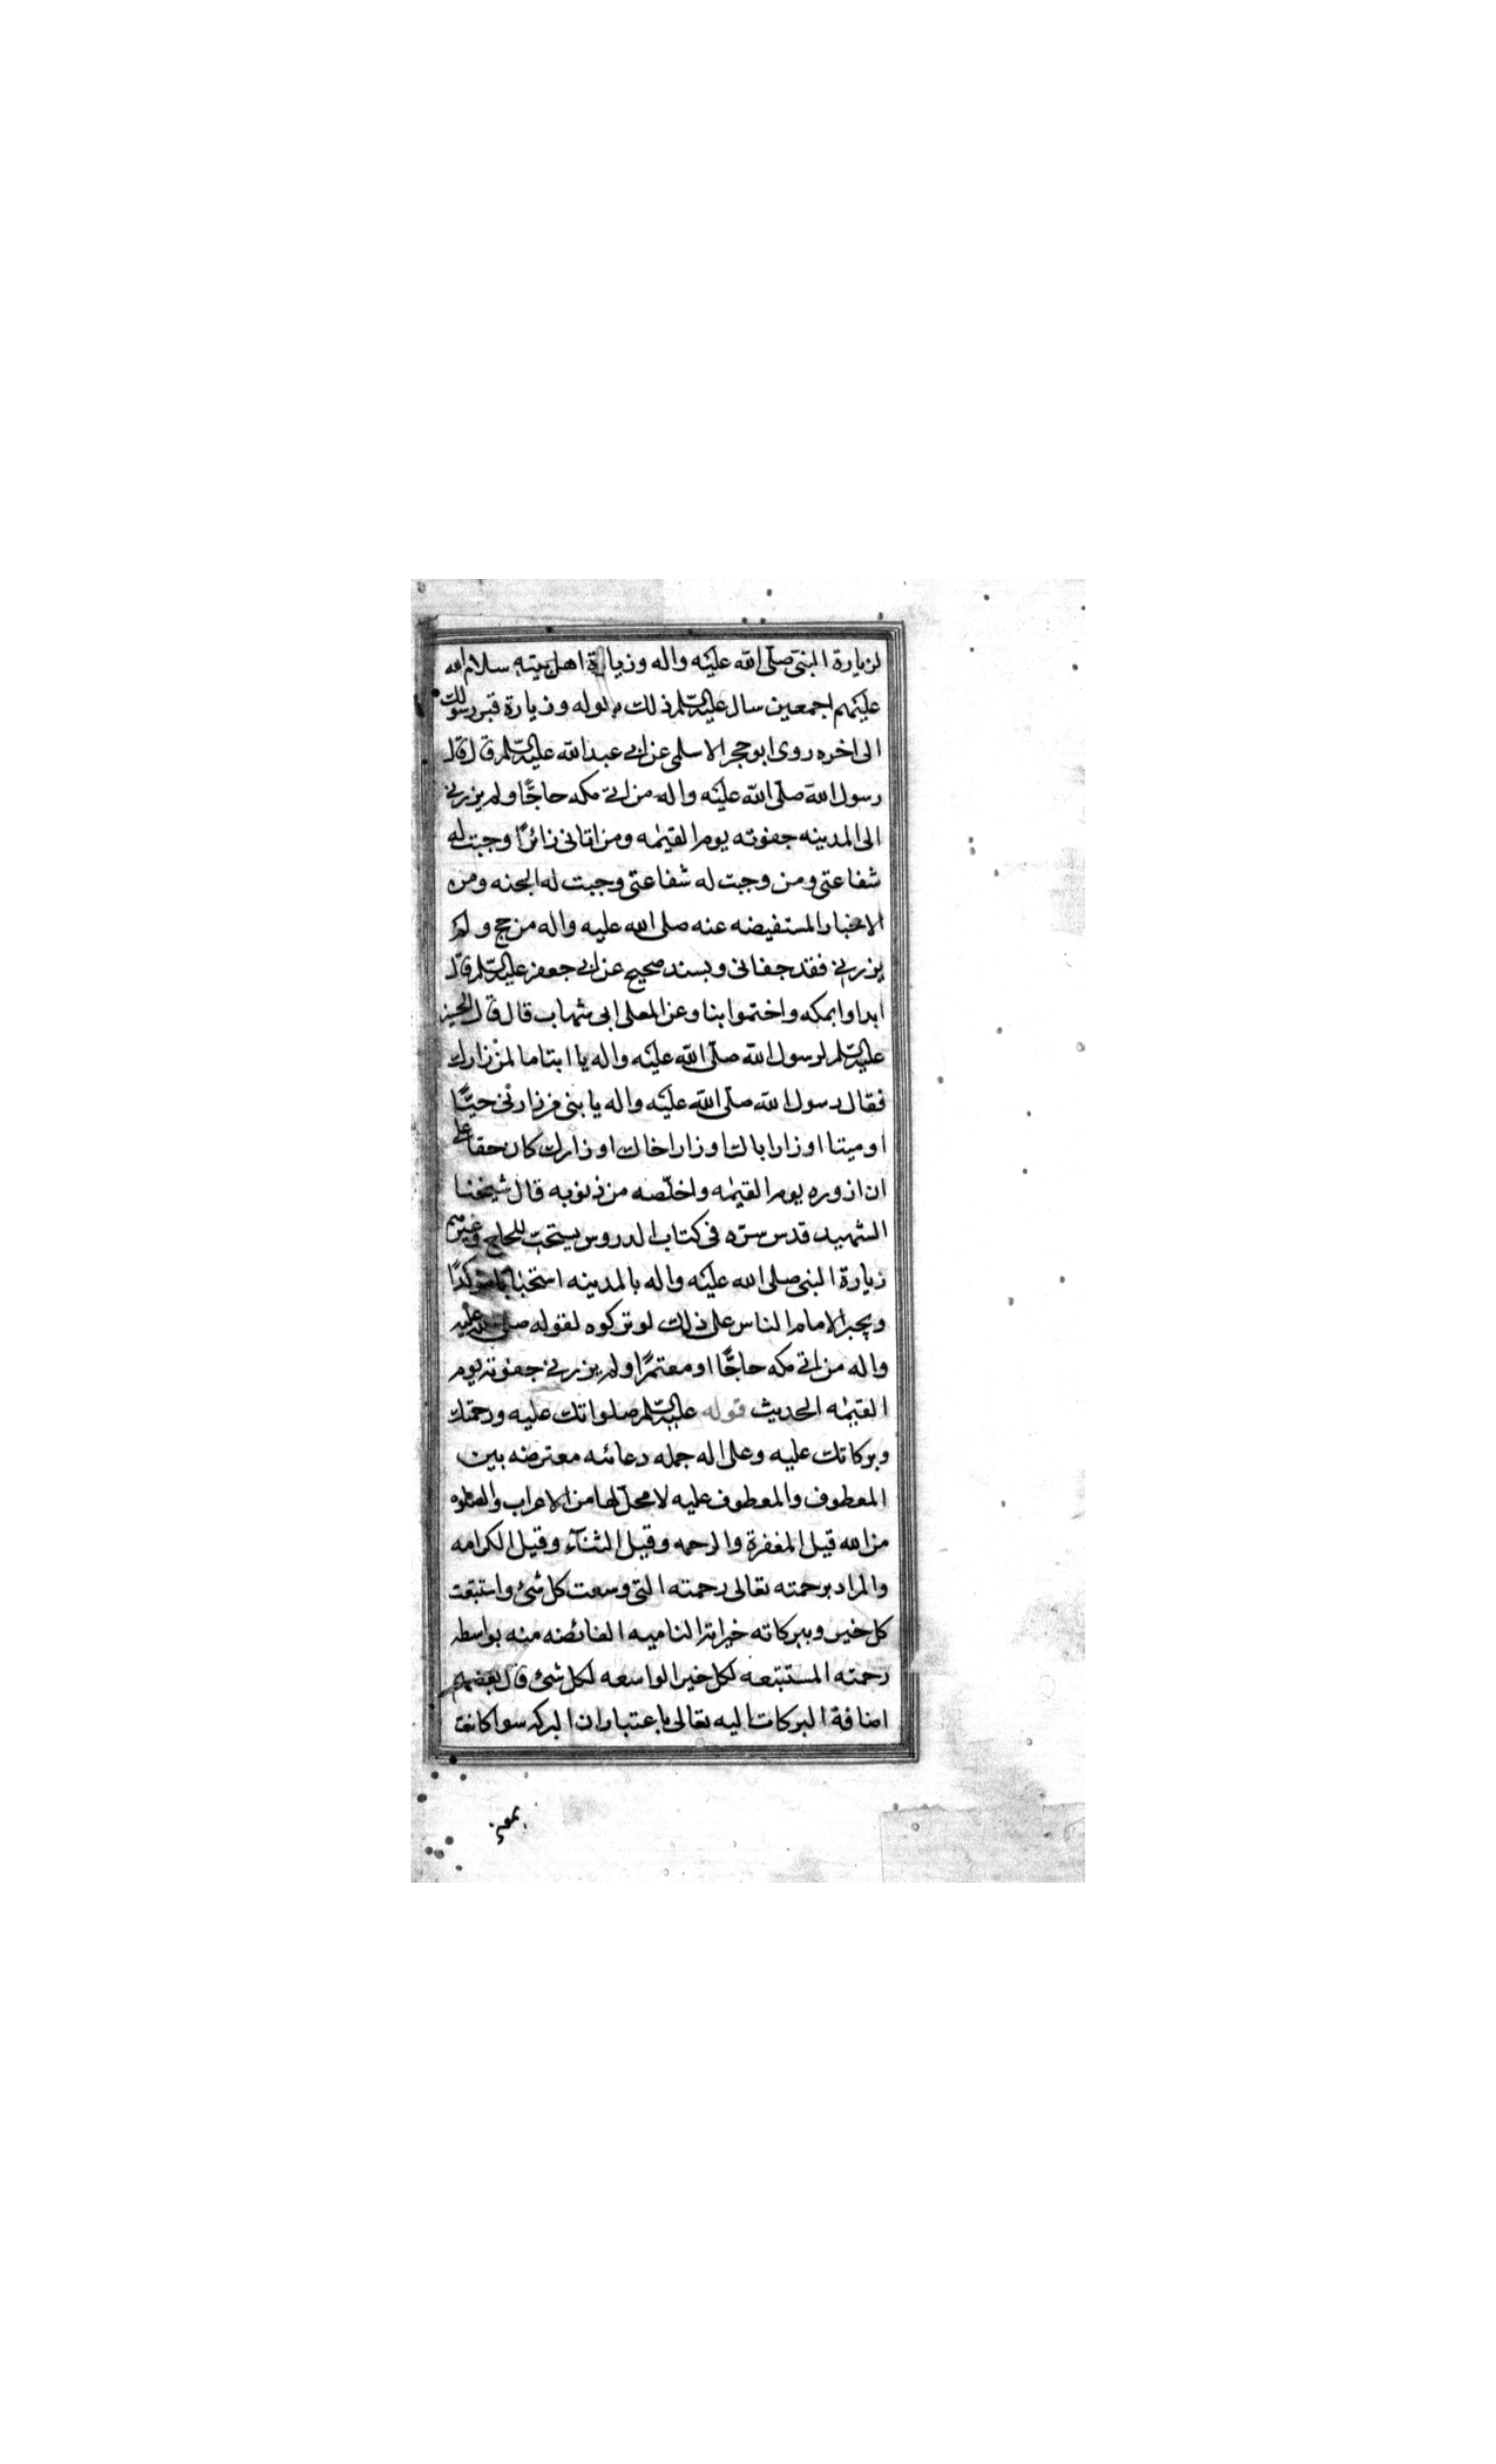 لزيارة النبى صلى الله عليه واله وزيارة اهل بيته سلام الله
عليهم اجمعين سال عليه السلم ذلك بقوله وزيارة قبر رسولك
الى اخره روى ابو حجر الاسلمى عن ابى عبد الله عليه السلم قال قال
رسول الله صلى الله عليه واله من اتى مكه حاجًّا ولم يزرنى
الى المدينه جفوته يوم القيمه ومن اتانى زائرًا وجبت له
شفاعتى ومن وجبت له شفاعتى وجبت له الجنه ومن
الاخبار المستفيضه عنه صلى الله عليه واله من حج ولم
يزرنى فقد جفانى وبسند صحيح عن ابى جعفر عليه السلم قال
ابداوا بمكه واختموا بنا وعن المعلى ابى شهاب قال قال الحسين
عليه السلم لرسول الله صلى الله عليه واله يا ابتا ما لمن زارك
فقال رسول الله صلى الله عليه واله يا بنى من زارنى حيًّا
او ميتا او زار اباك او زار اخاك او زارك كان حقا على
ان ازوره يوم القيمه واخلّصه من ذنوبه قال شيخنا
الشهيد قدس سره فى كتاب الدروس يستحب للحاج وغيرهم
زيارة النبى صلى الله عليه واله بالمدينه استحبابا مؤكدًا
ويجبر الامام الناس على ذلك لو تركوه لقوله صلى الله عليه
واله من اتى مكه حاجًّا او معتمرًا ولم يزرنى جفوته يوم
القيمه الحديث قوله عليه السلم صلواتك عليه ورحمتك
وبركاتك عليه وعلى اله جمله دعائيه معترضه بين
المعطوف والمعطوف عليه لا محلّ لها من الاعراب والصلوه
من الله قيل المغفرة والرحمه وقيل الثنآء وقيل الكرامه
والمراد برحمته تعالى رحمته التى وسعت كل شئ واستتبعت
كل خير وببركاته خيراته الناميه الفائضه منه بواسطه
رحمته المستتبعه لكل خير الواسعه لكل شئ قال بعضهم
اضافة البركات اليه تعالى باعتبار ان البركه سوا كانت
بمعنى